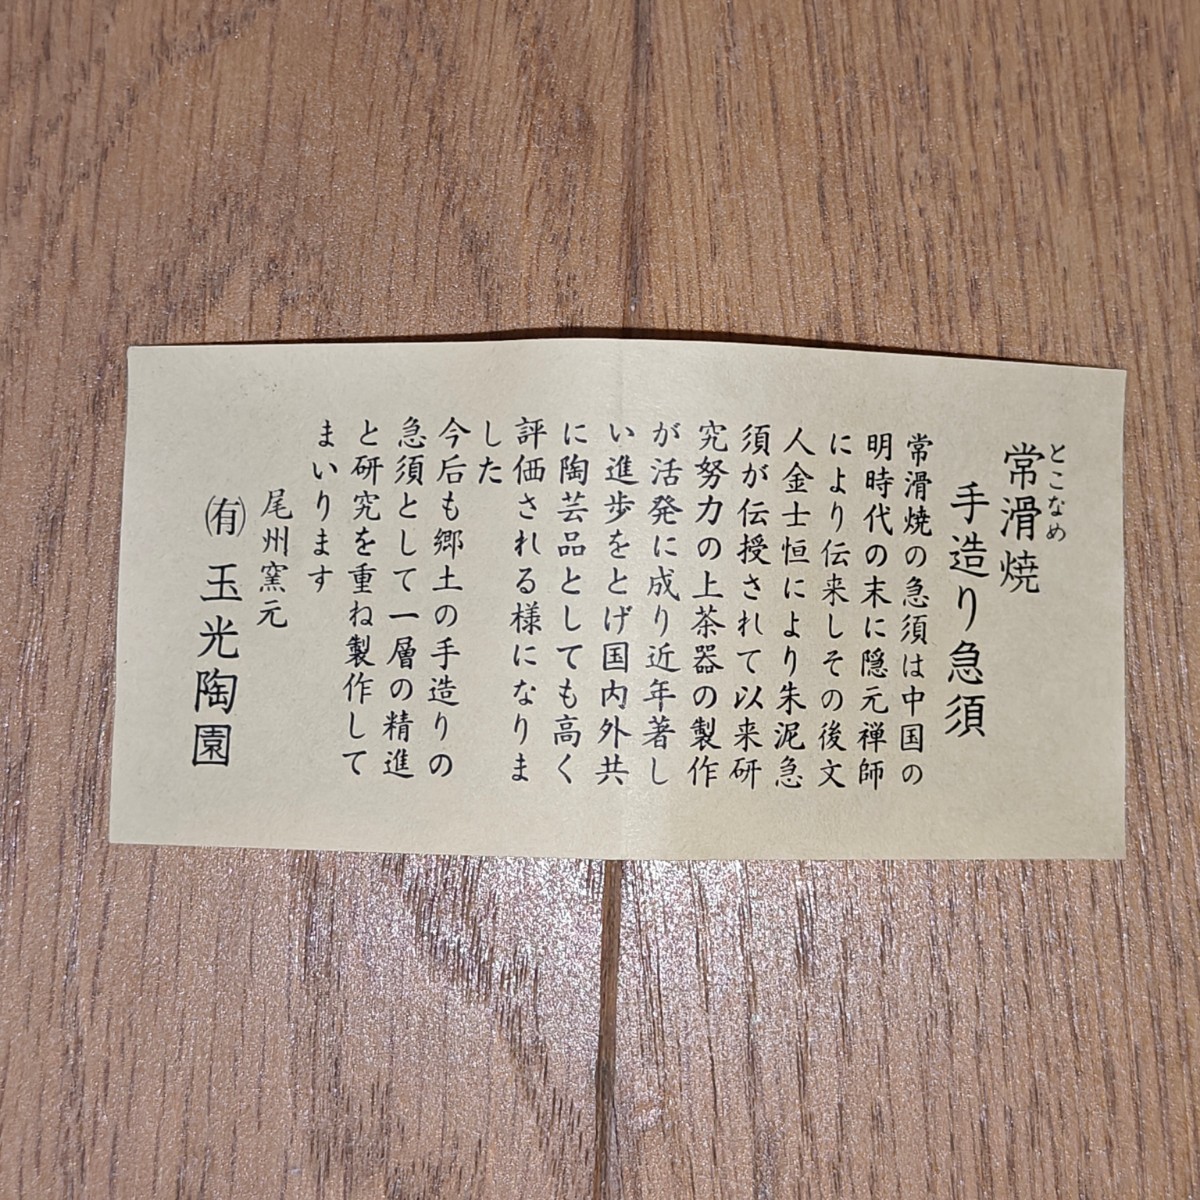 とこなめ
常滑焼
手造り急須
常滑焼の急須は中国の
明時代の末に隠元禅師
により伝来しその後文
人金士恒により朱泥急
須が伝授されて以来研
究努力の上茶器の製作
が活発に成り近年著し
い進歩をとげ国内外共
に陶芸品としても高く
評価される様になりま
した
今后も郷土の手造りの
急須として一層の精進
と研究を重ね製作して
まいります
尾州窯元
㈲ 玉光陶園